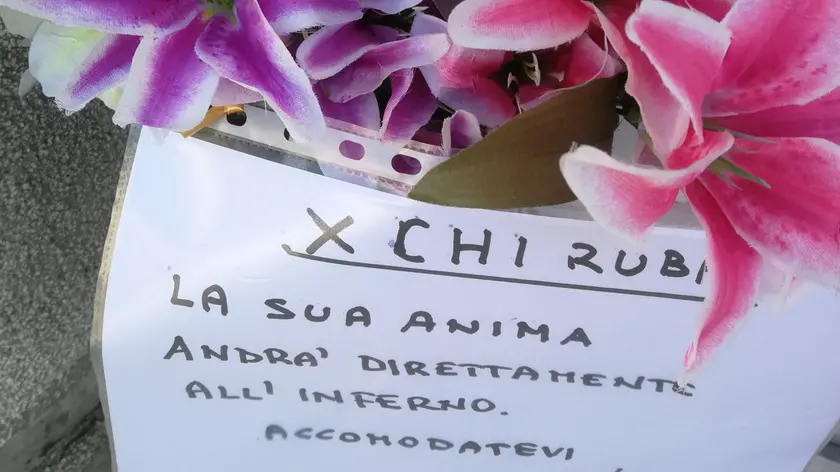 X CHI RUBA
LA SUA ANIMA
ANDRA' DIRETTAMENTE
ALL' INFERNO.
ACCOMODATEVI